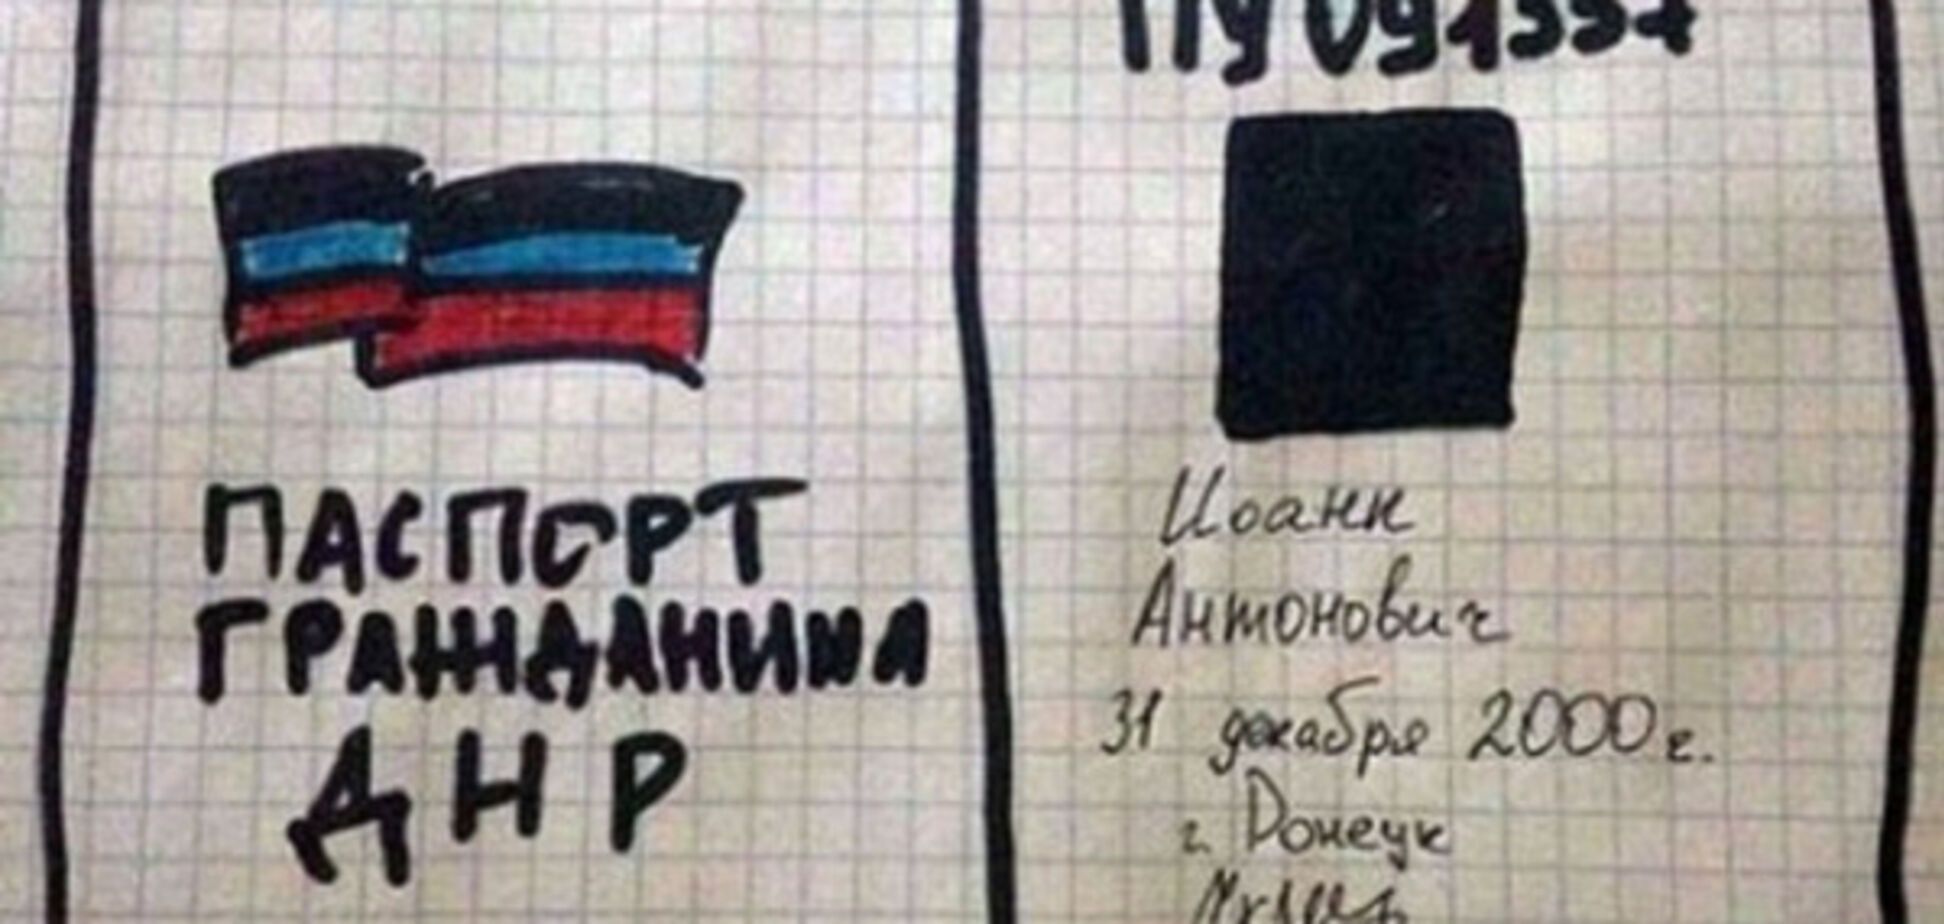 ПАСПОРТ
ГРАЖДАНИНА
ДНР
Иоанн
Антонович
31 декабря 2000 г.
г. Донецк